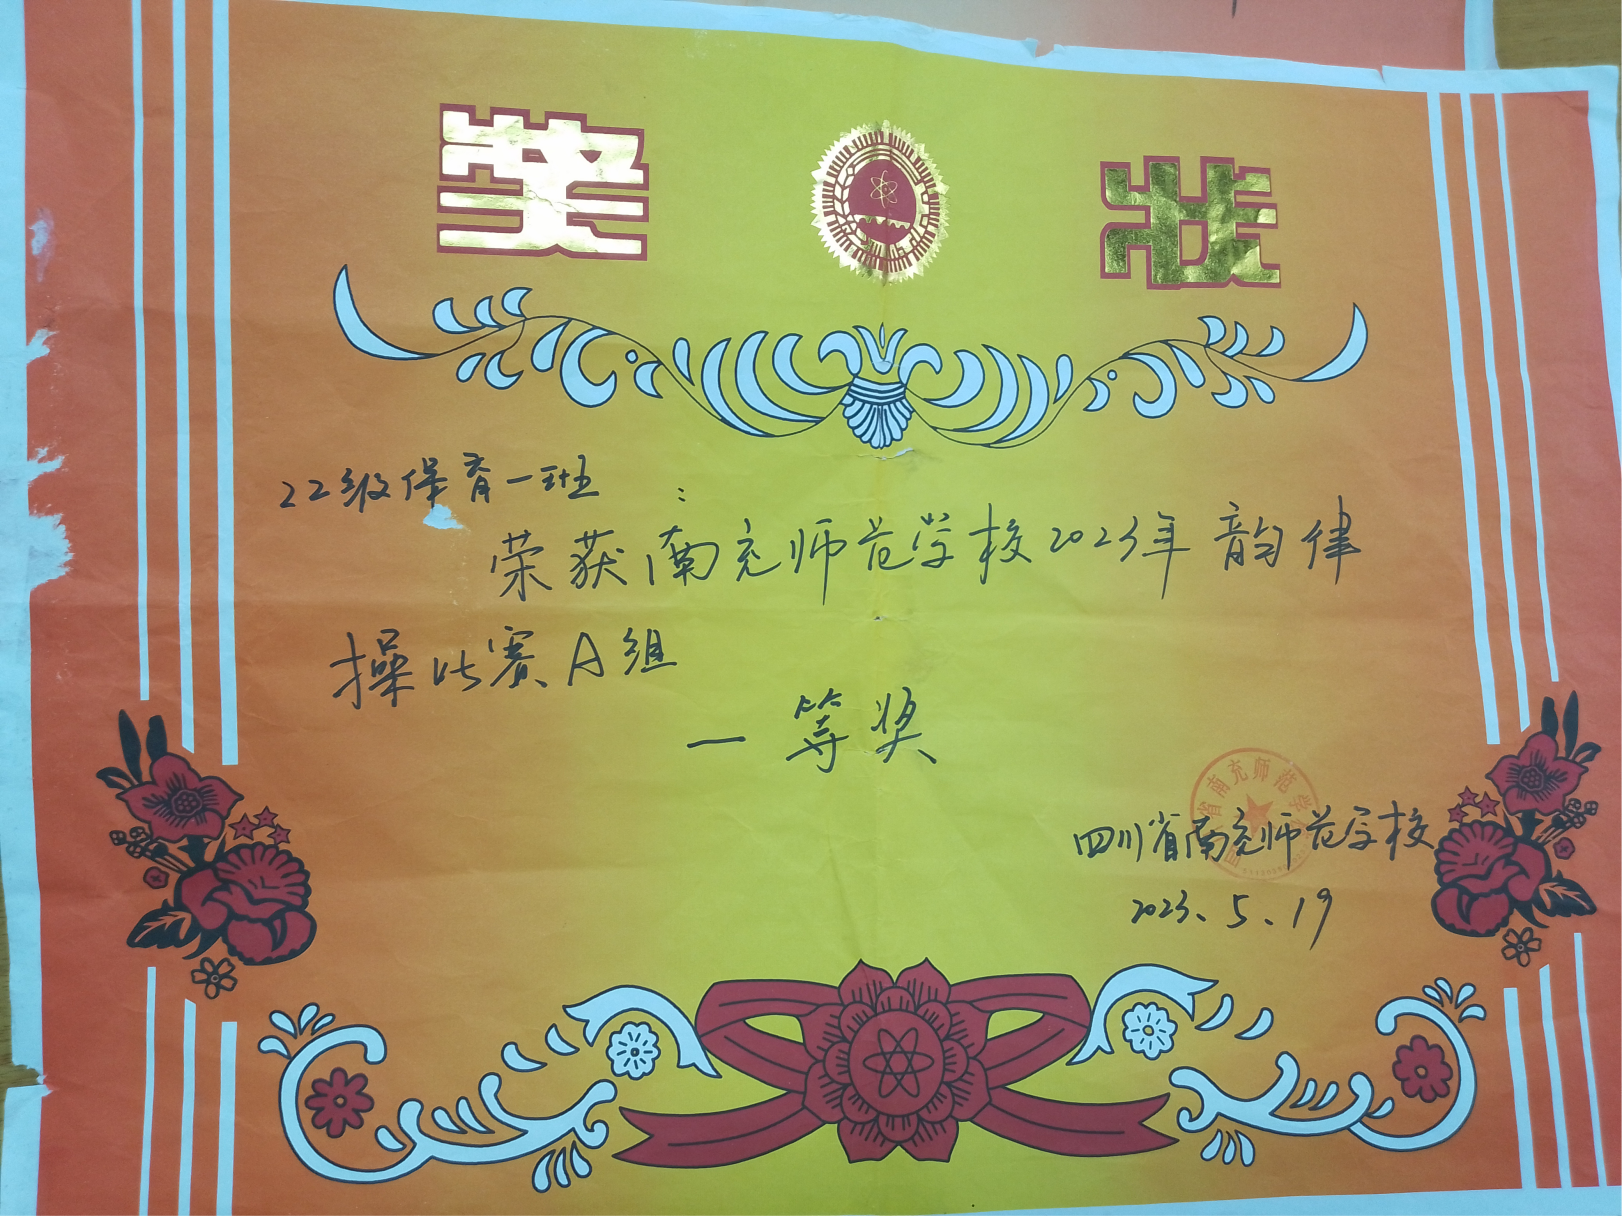 奖 状
22级保育一班 :
荣获南充师范学校2023年韵律
操比赛A组
一等奖
省南充师范学
四川省南充师范学校
2023、5、19